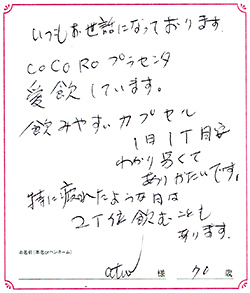 いつもお世話になっております.
COCORO プラセンタ
愛飲しています。
飲みやすいカプセル
1日1T目安
わかり易くて
ありがたいです。
特に疲れたような日は
2T位飲むことも
あります.
お名前(本名orペンネーム)
様 70歳